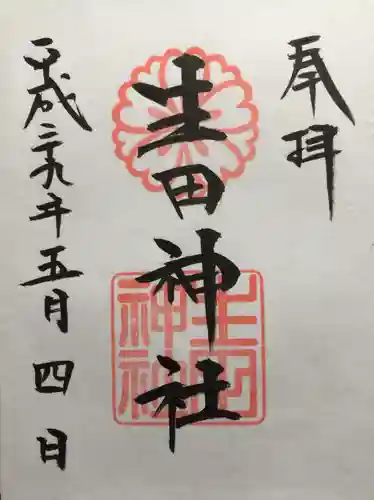 奉拝
生田神社
生田
神社
平成二十九年五月四日